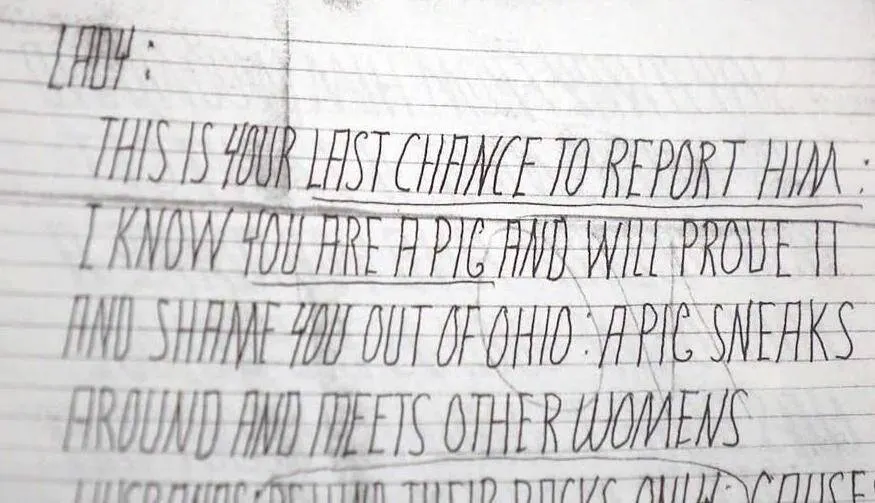 LADY:
THIS IS YOUR LAST CHANCE TO REPORT HIM:
I KNOW YOU ARE A PIG AND WILL PROVE IT
AND SHAME YOU OUT OF OHIO: A PIG SNEAKS
AROUND AND MEETS OTHER WOMENS
HUSBANDS BEHIND THEIR BACKS ONLY: CAUSE